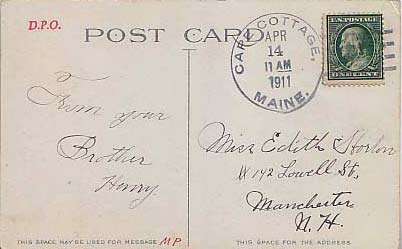 D.P.O.
POST CARD
CAPE COTTAGE,
APR
14
11 AM
1911
MAINE.
U.S. POSTAGE
ONE CENT
To
From your
Brother
Henry.
Miss Edith Horton
#142 Lowell St.,
Manchester
N.H.
THIS SPACE MAY BE USED FOR MESSAGE
MP
THIS SPACE FOR THE ADDRESS